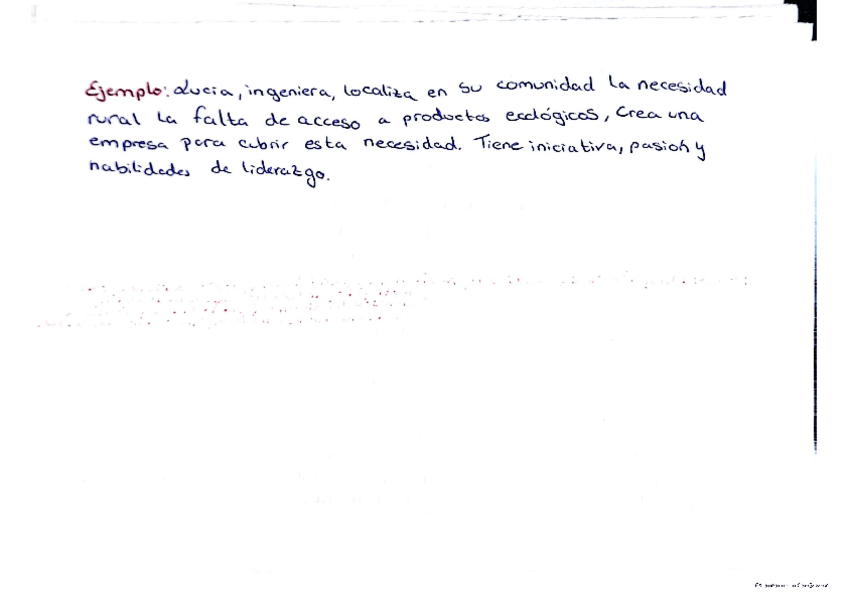 Ejemplo: Lucia, ingeniera, localiza en su comunidad la necesidad
rural la falta de acceso a productos ecológicos, Crea una
empresa para cubrir esta necesidad. Tiene iniciativa, pasión y
habilidades de liderazgo.